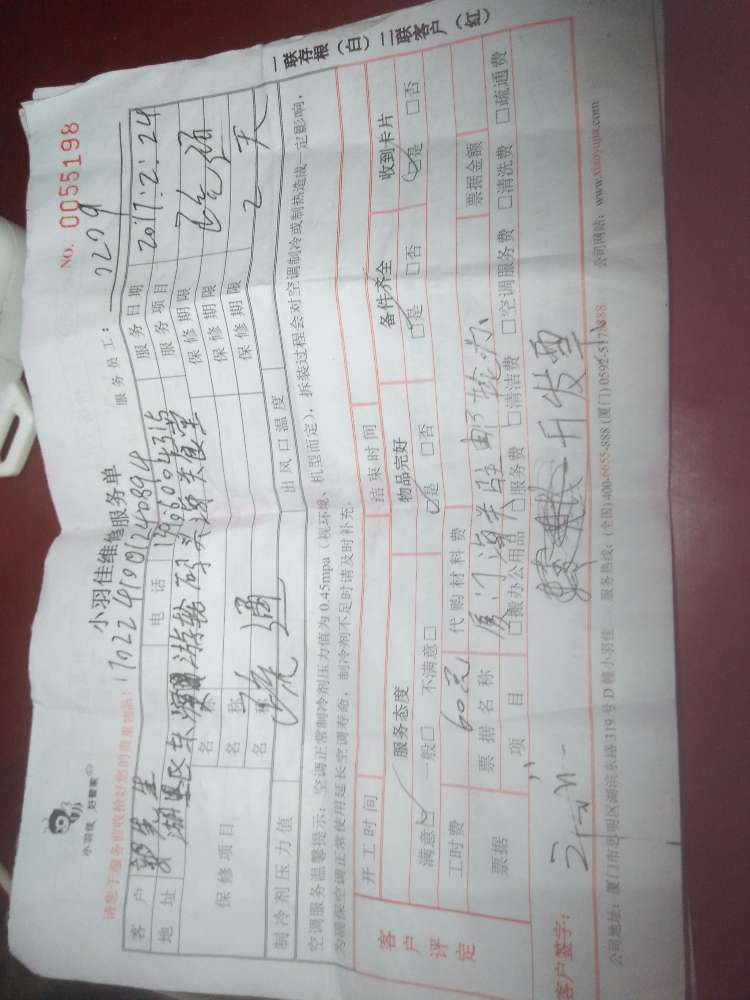 小羽佳 好管家
小羽佳维修服务单
NO. 0055198
请您于服务前收捡好您的贵重物品!
17022419001240894
服务员工:
客户 郭先生 电话
服务日期 2017.2.24
地址
服务项目 疏通
保修项目
名称
保修期限
名称
保修期限
名称 疏通
保修期限 2天
制冷剂压力值
出风口温度
空调服务温馨提示:空调正常制冷剂压力值为0.45mpa(视环境、机型而定),拆装过程会对空调制冷或制热造成一定影响,
为确保空调正常使用延长空调寿命,制冷剂不足时请及时补充。
客户评定
开工时间
结束时间
服务态度
物品完好
备件齐全
收到卡片
满意□ 一般□ 不满意□
□是 □否
□是 □否
□是 □否
工时费 60元
代购材料费
票据
票据名称
票据金额
项目
□搬办公用品 □服务费 □清洁费 □空调服务费 □清洗费 □疏通费
客户签字:
开发票
公司地址:厦门市思明区湖滨东路319号D幢小羽佳
服务热线:(全国)400-6655-888 (厦门)0592-5177888
公司网站:www.xiaoyujia.com
一联存根(白)二联客户(红)